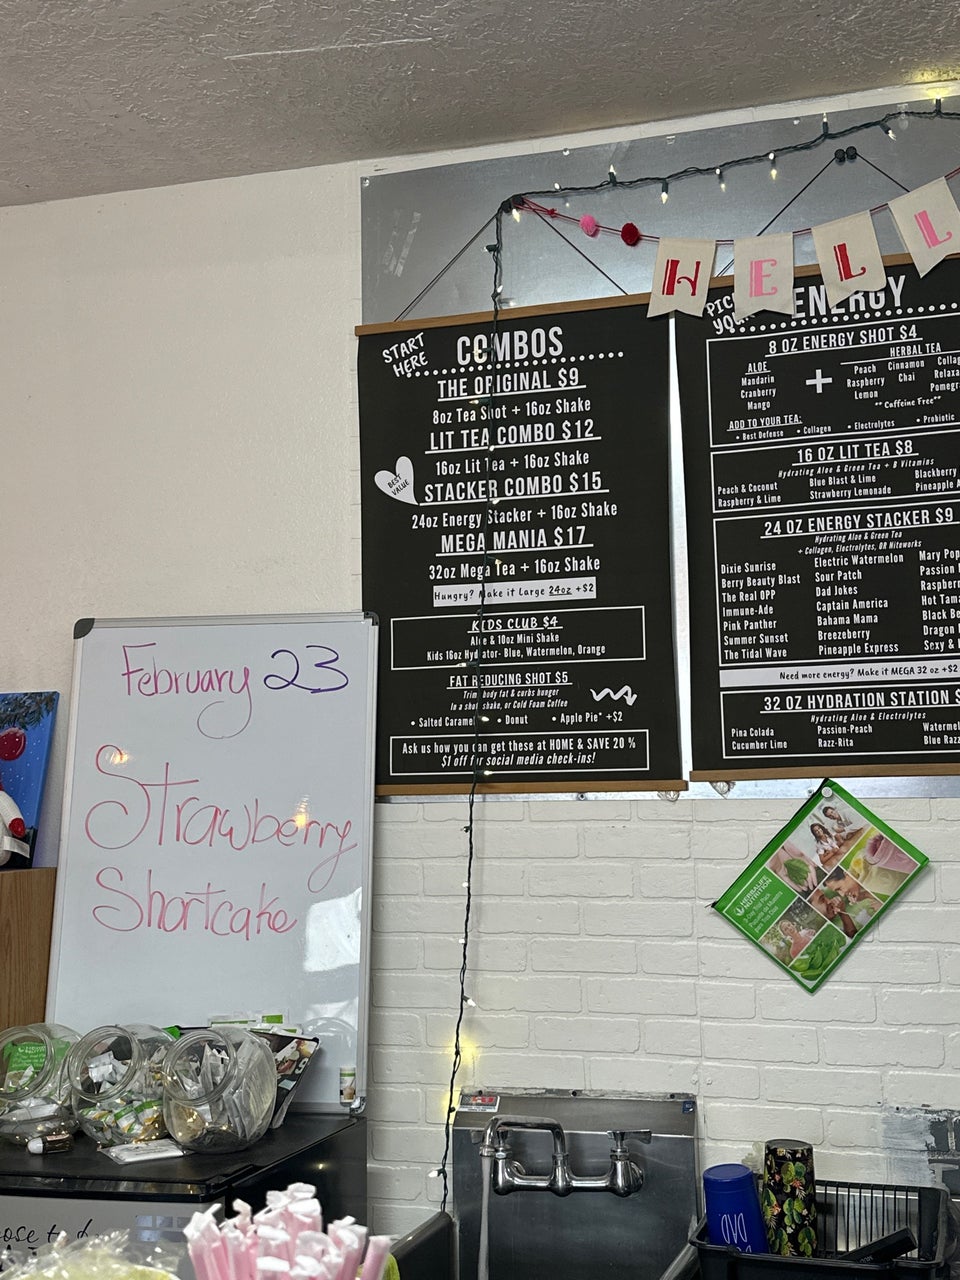 February 23
Strawberry
Shortcake
START
HERE
COMBOS
THE ORIGINAL $9
8oz Tea Shot + 16oz Shake
LIT TEA COMBO $12
16oz Lit Tea + 16oz Shake
BEST
VALUE
STACKER COMBO $15
24oz Energy Stacker + 16oz Shake
MEGA MANIA $17
32oz Mega Tea + 16oz Shake
Hungry? Make it Large 24oz +$2
KIDS CLUB $4
Aloe & 10oz Mini Shake
Kids 16oz Hydrator- Blue, Watermelon, Orange
FAT REDUCING SHOT $5
Trim body fat & curbs hunger
In a shot, shake, or Cold Foam Coffee
• Salted Caramel • Donut • Apple Pie* +$2
Ask us how you can get these at HOME & SAVE 20 %
$1 off for social media check-ins!
HELL
ENERGY
8 OZ ENERGY SHOT $4
ALOE
Mandarin
Cranberry
Mango
+
HERBAL TEA
Peach Cinnamon
Raspberry Chai
Lemon
** Caffeine Free**
ADD TO YOUR TEA:
• Best Defense • Collagen • Electrolytes • Probiotic
16 OZ LIT TEA $8
Hydrating Aloe & Green Tea + B Vitamins
Peach & Coconut Blue Blast & Lime Blackberry
Raspberry & Lime Strawberry Lemonade Pineapple
24 OZ ENERGY STACKER $9
Hydrating Aloe & Green Tea
+ Collagen, Electrolytes, OR Niteworks
Dixie Sunrise Electric Watermelon Mary
Berry Beauty Blast Sour Patch Passion
The Real OPP Dad Jokes
Immune-Ade Captain America Hot
Pink Panther Bahama Mama Black
Summer Sunset Breezeberry Dragon
The Tidal Wave Pineapple Express Sexy &
Need more energy? Make it MEGA 32 oz +$2
32 OZ HYDRATION STATION
Hydrating Aloe & Electrolytes
Pina Colada Passion-Peach
Cucumber Lime Razz-Rita Blue
HERBALIFE
NUTRITION
3-Day Trial Pack